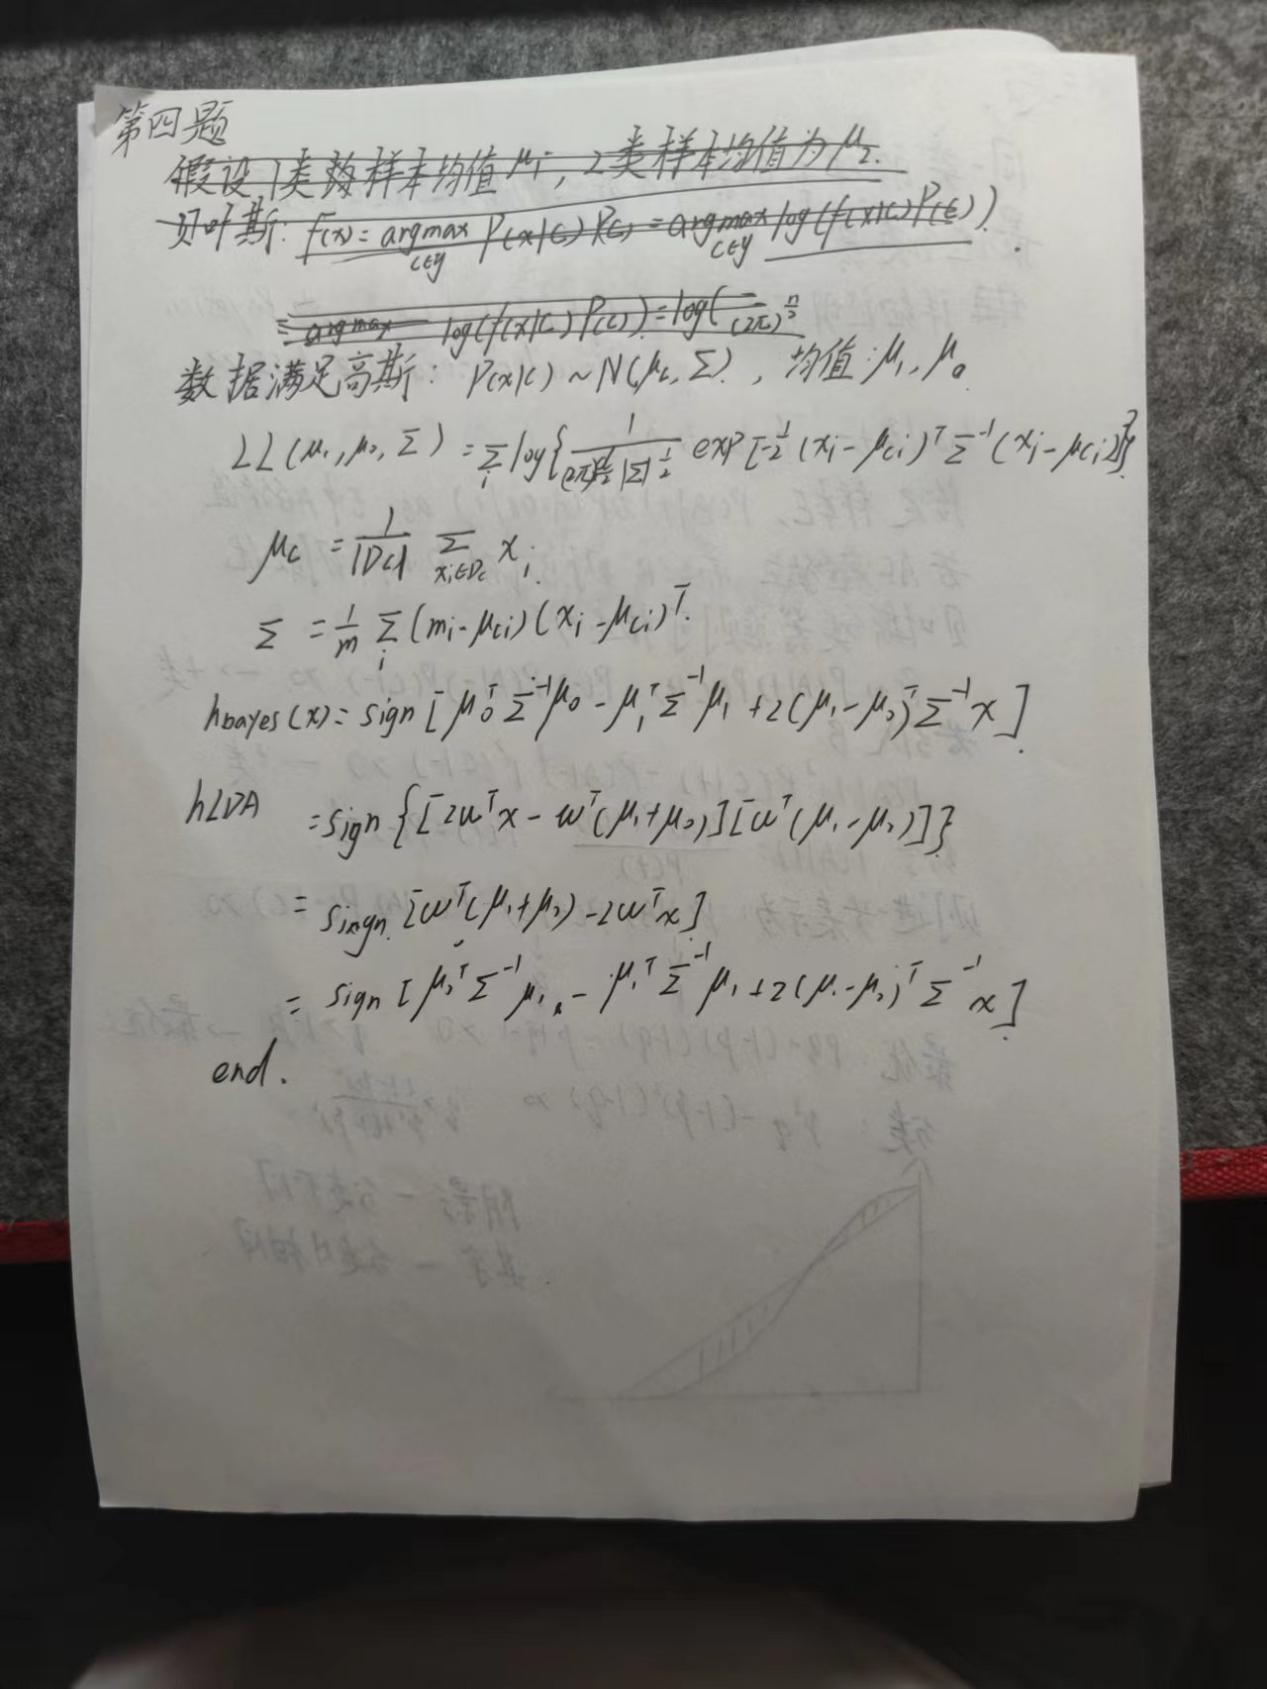 第四题
假设1类数样本均值μ1, 2类样本均值为μ2.
贝叶斯: f(x) = argmax_{c∈y} P(x|c) P(c) = argmax_{c∈y} log(f(x|c)P(c))
= argmax log(f(x|c)P(c)) = log( 1/(2π)^{n/2}
数据满足高斯: P(x|c) ~ N(μc, Σ), 均值: μ1, μ0
LL(μ1, μ2, Σ) = Σ_i log{ 1/((2π)^{d/2} |Σ|^{1/2}) exp[-1/2 (xi - μci)^T Σ^{-1} (xi - μci)]}
μc = 1/|Dc| Σ_{xi∈Dc} xi
Σ = 1/m Σ_i (mi - μci)(xi - μci)^T.
hbayes(x) = sign [μ0^T Σ^{-1} μ0 - μ1^T Σ^{-1} μ1 + 2(μ1 - μ2)^T Σ^{-1} x].
hLDA = sign {[2w^T x - w^T(μ1 + μ2)][w^T(μ1 - μ2)]}
= singn [w^T(μ1 + μ2) - 2w^T x]
= sign [μ2^T Σ^{-1} μ1 - μ1^T Σ^{-1} μ1 + 2(μ1 - μ2)^T Σ^{-1} x].
end.